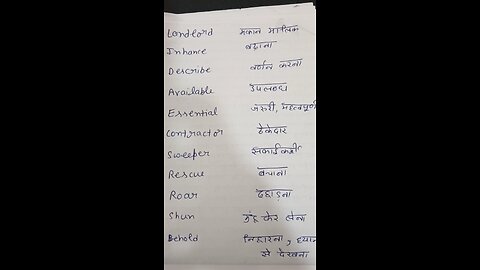 Landlord मकान मालिक
Inhance बढ़ाना
Describe वर्णन करना
Available उपलब्ध
Essential जरुरी, महत्वपूर्ण
Contractor ठेकेदार
Sweeper सफाई कर्मी
Rescue बचाना
Roar दहाड़ना
Shun मुंह फेर लेना
Behold निहारना, ध्यान
से देखना